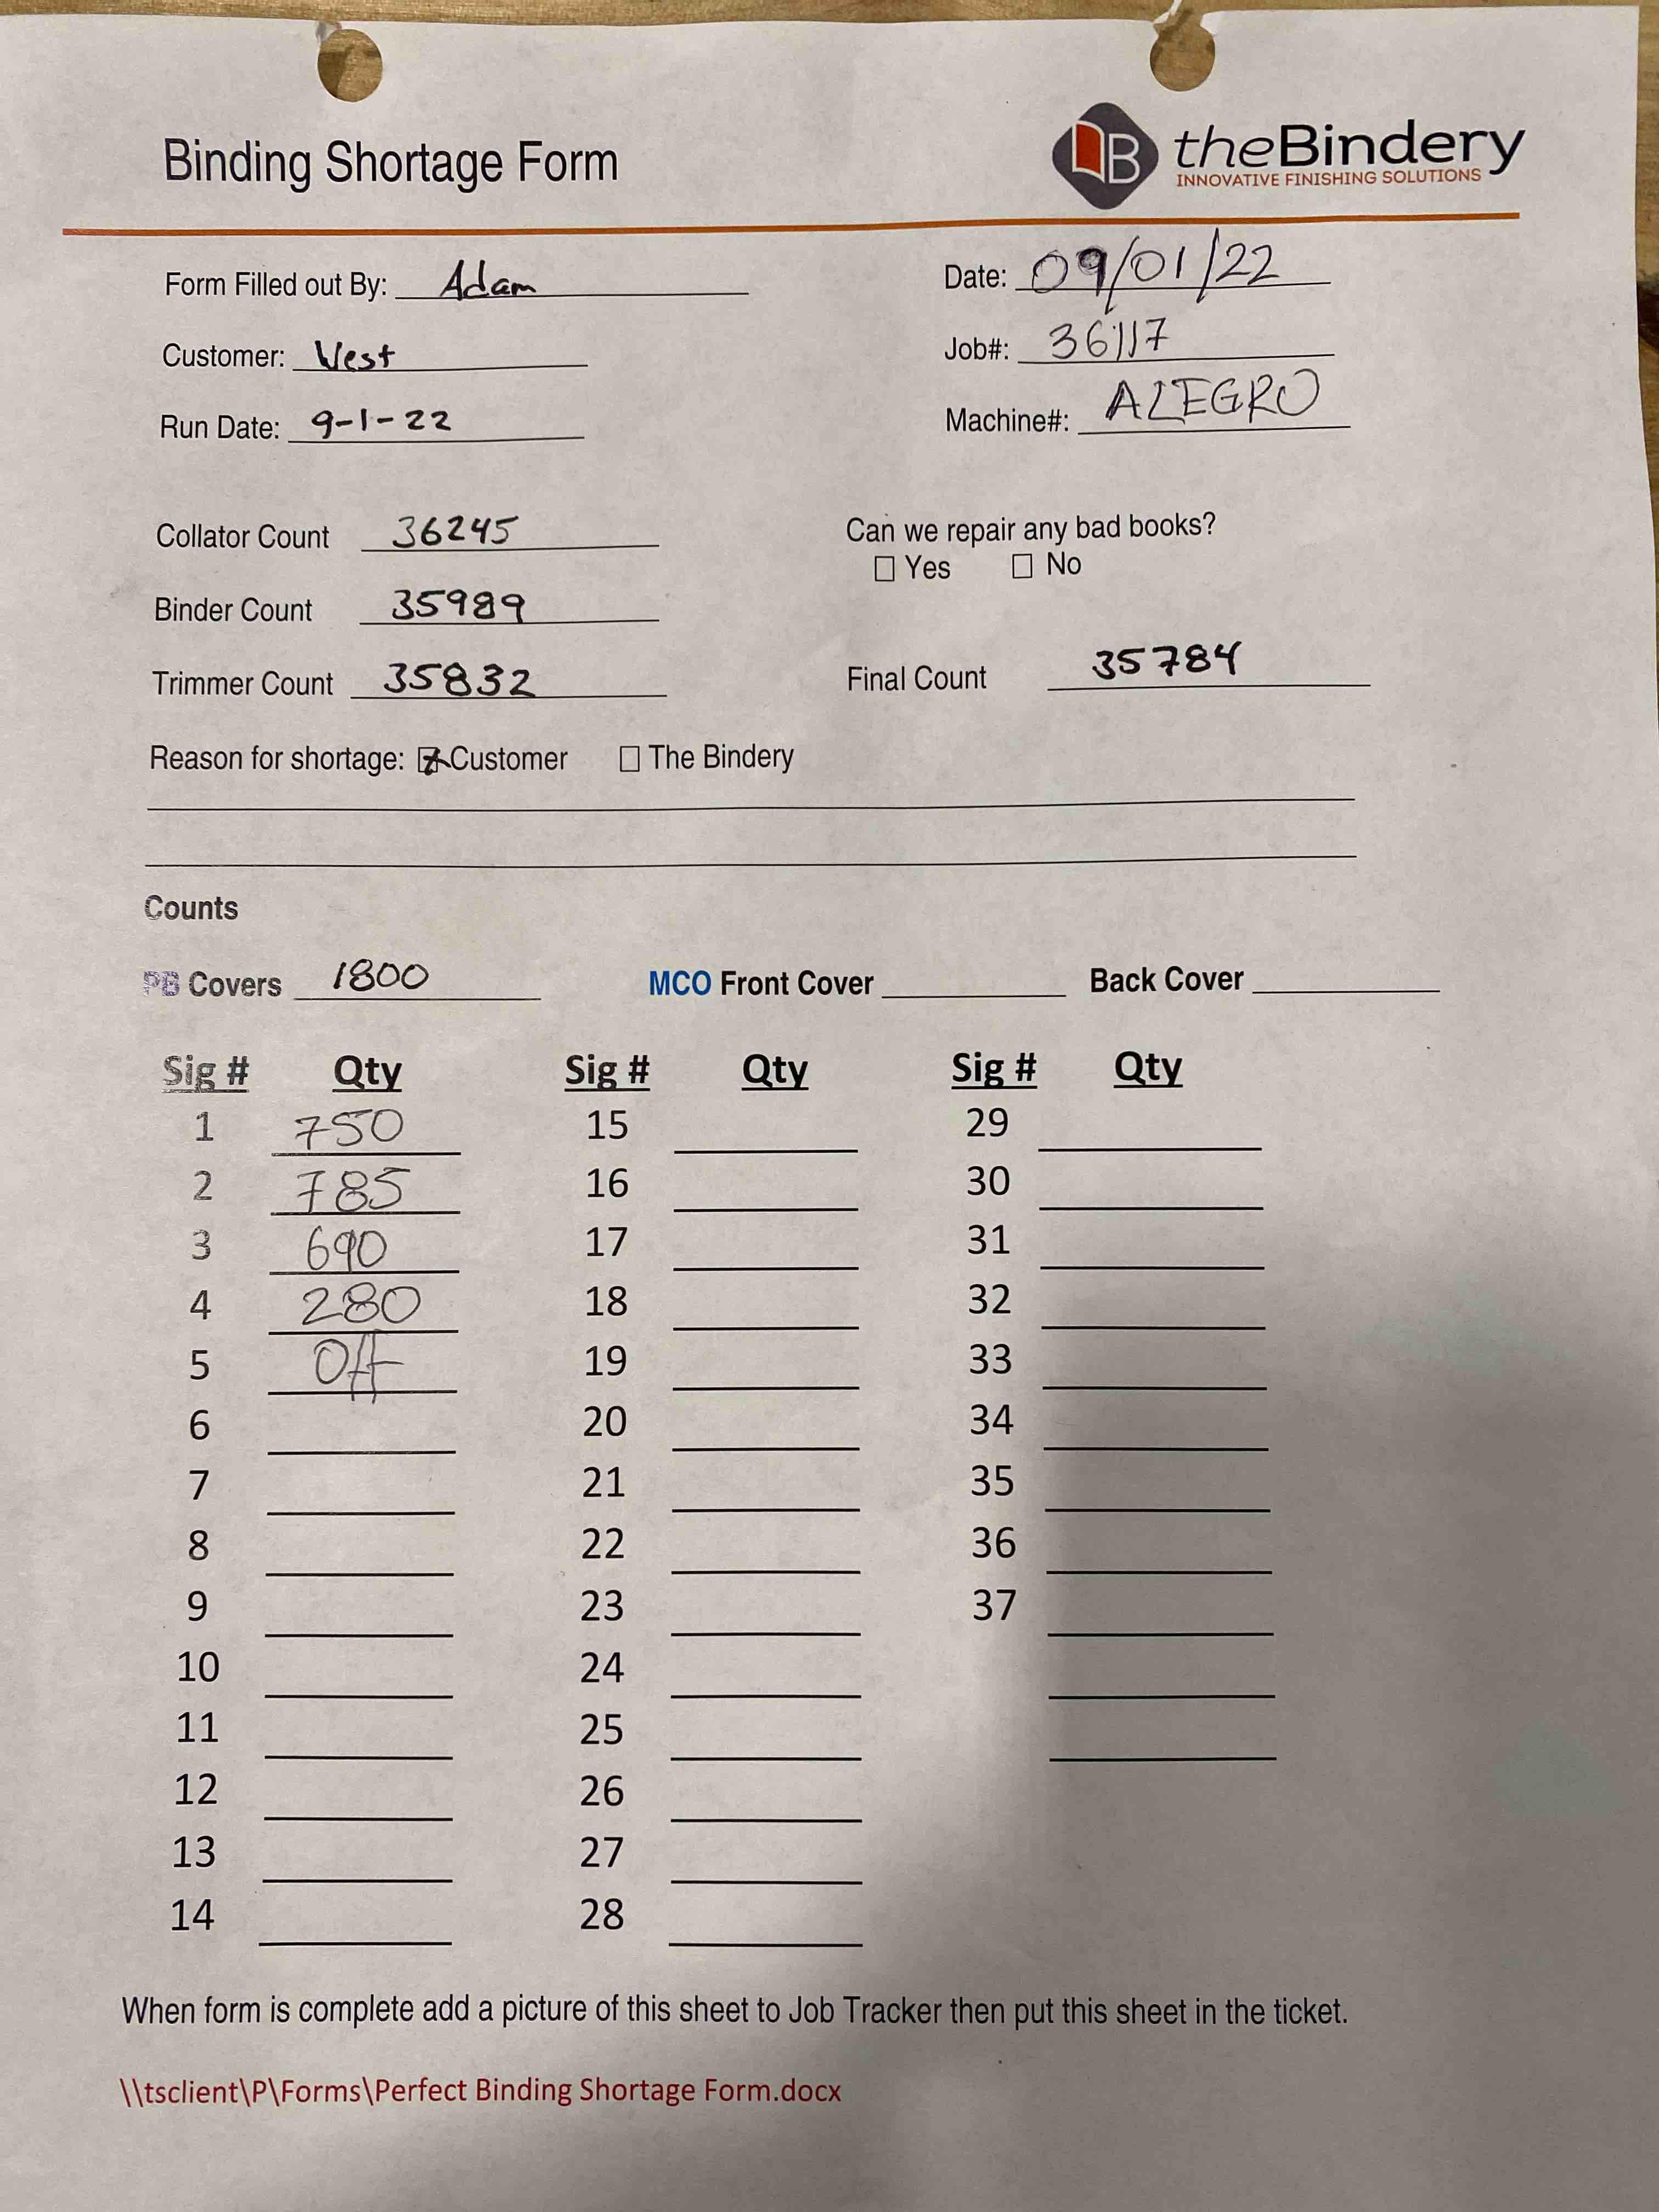 Binding Shortage Form
B theBindery
INNOVATIVE FINISHING SOLUTIONS
Form Filled out By: Adam
Date: 09/01/22
Customer: Vest
Job#: 36117
Run Date: 9-1-22
Machine#: ALEGRO
Collator Count 36245
Can we repair any bad books?
Yes No
Binder Count 35989
Trimmer Count 35832
Final Count 35784
Reason for shortage: Customer The Bindery
Counts
PB Covers 1800 MCO Front Cover Back Cover
Sig # Qty Sig # Qty Sig # Qty
1 750 15 29
2 785 16 30
3 690 17 31
4 280 18 32
5 Off 19 33
6 20 34
7 21 35
8 22 36
9 23 37
10 24
11 25
12 26
13 27
14 28
When form is complete add a picture of this sheet to Job Tracker then put this sheet in the ticket.
\\tsclient\P\Forms\Perfect Binding Shortage Form.docx